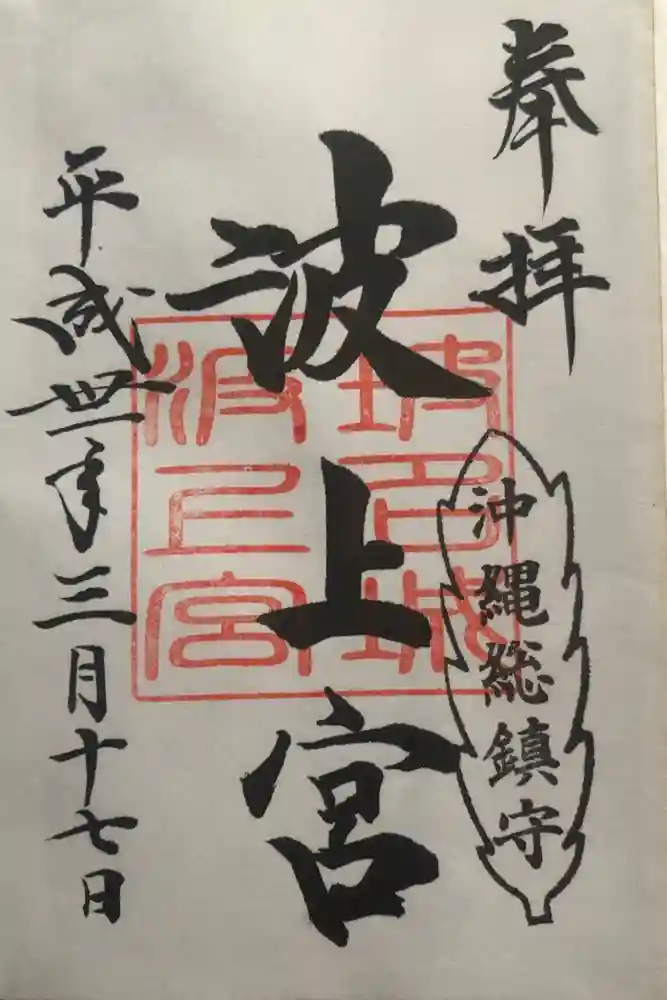 奉拝
沖縄総鎮守
波上宮
波上宮
平成丗年三月十七日